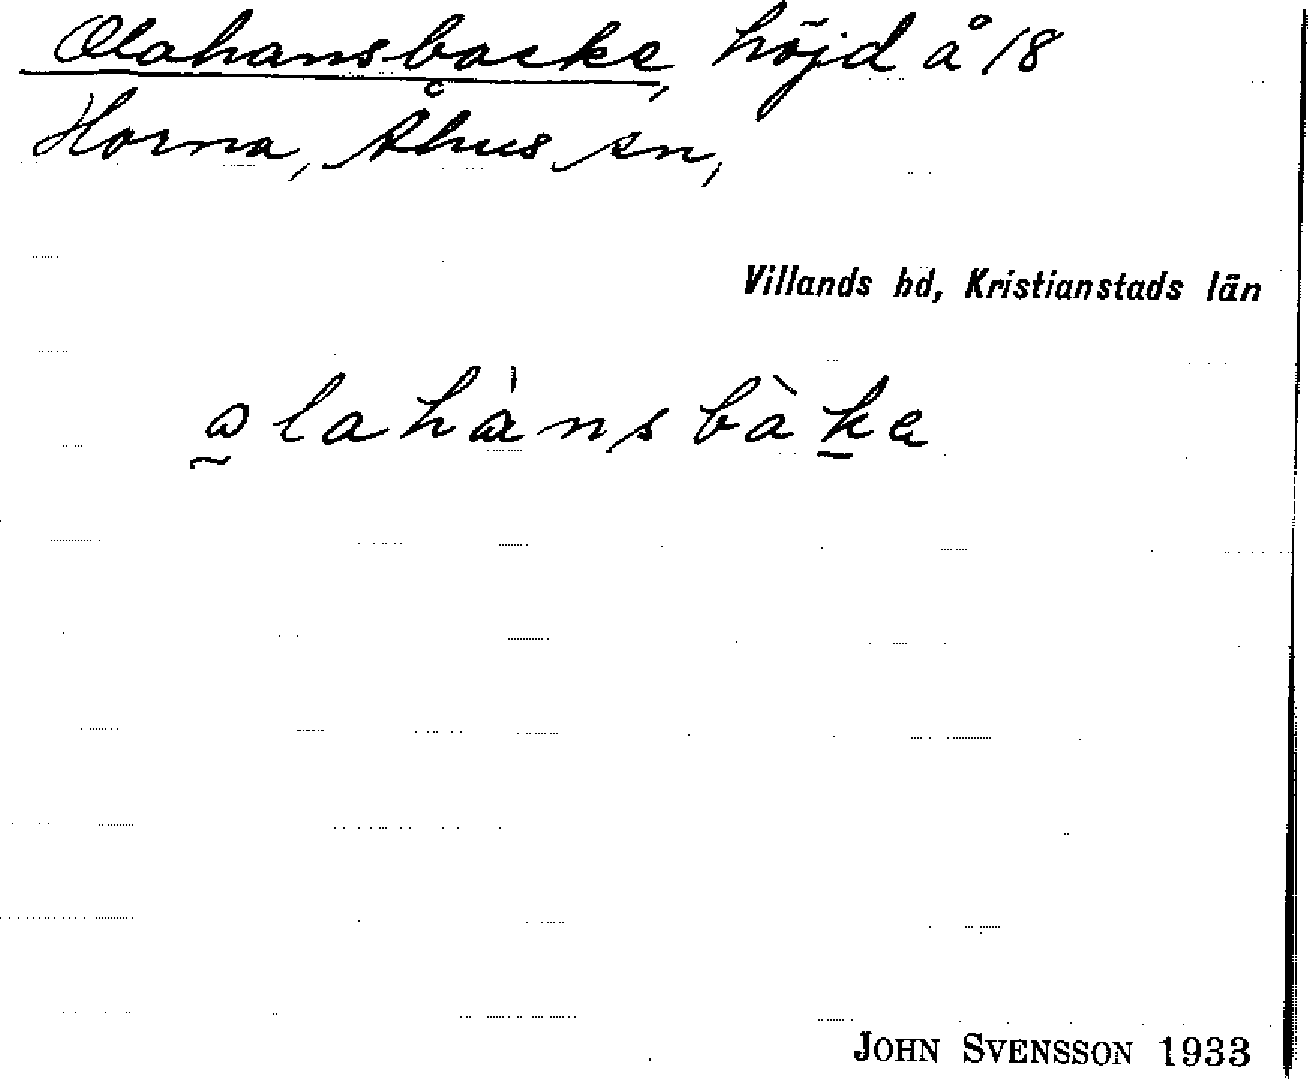 Olahansbacke, höjd å 18
Horna, Åhus sn,
Villands hd, Kristianstads län
alahànsbàka
JOHN SVENSSON 1933